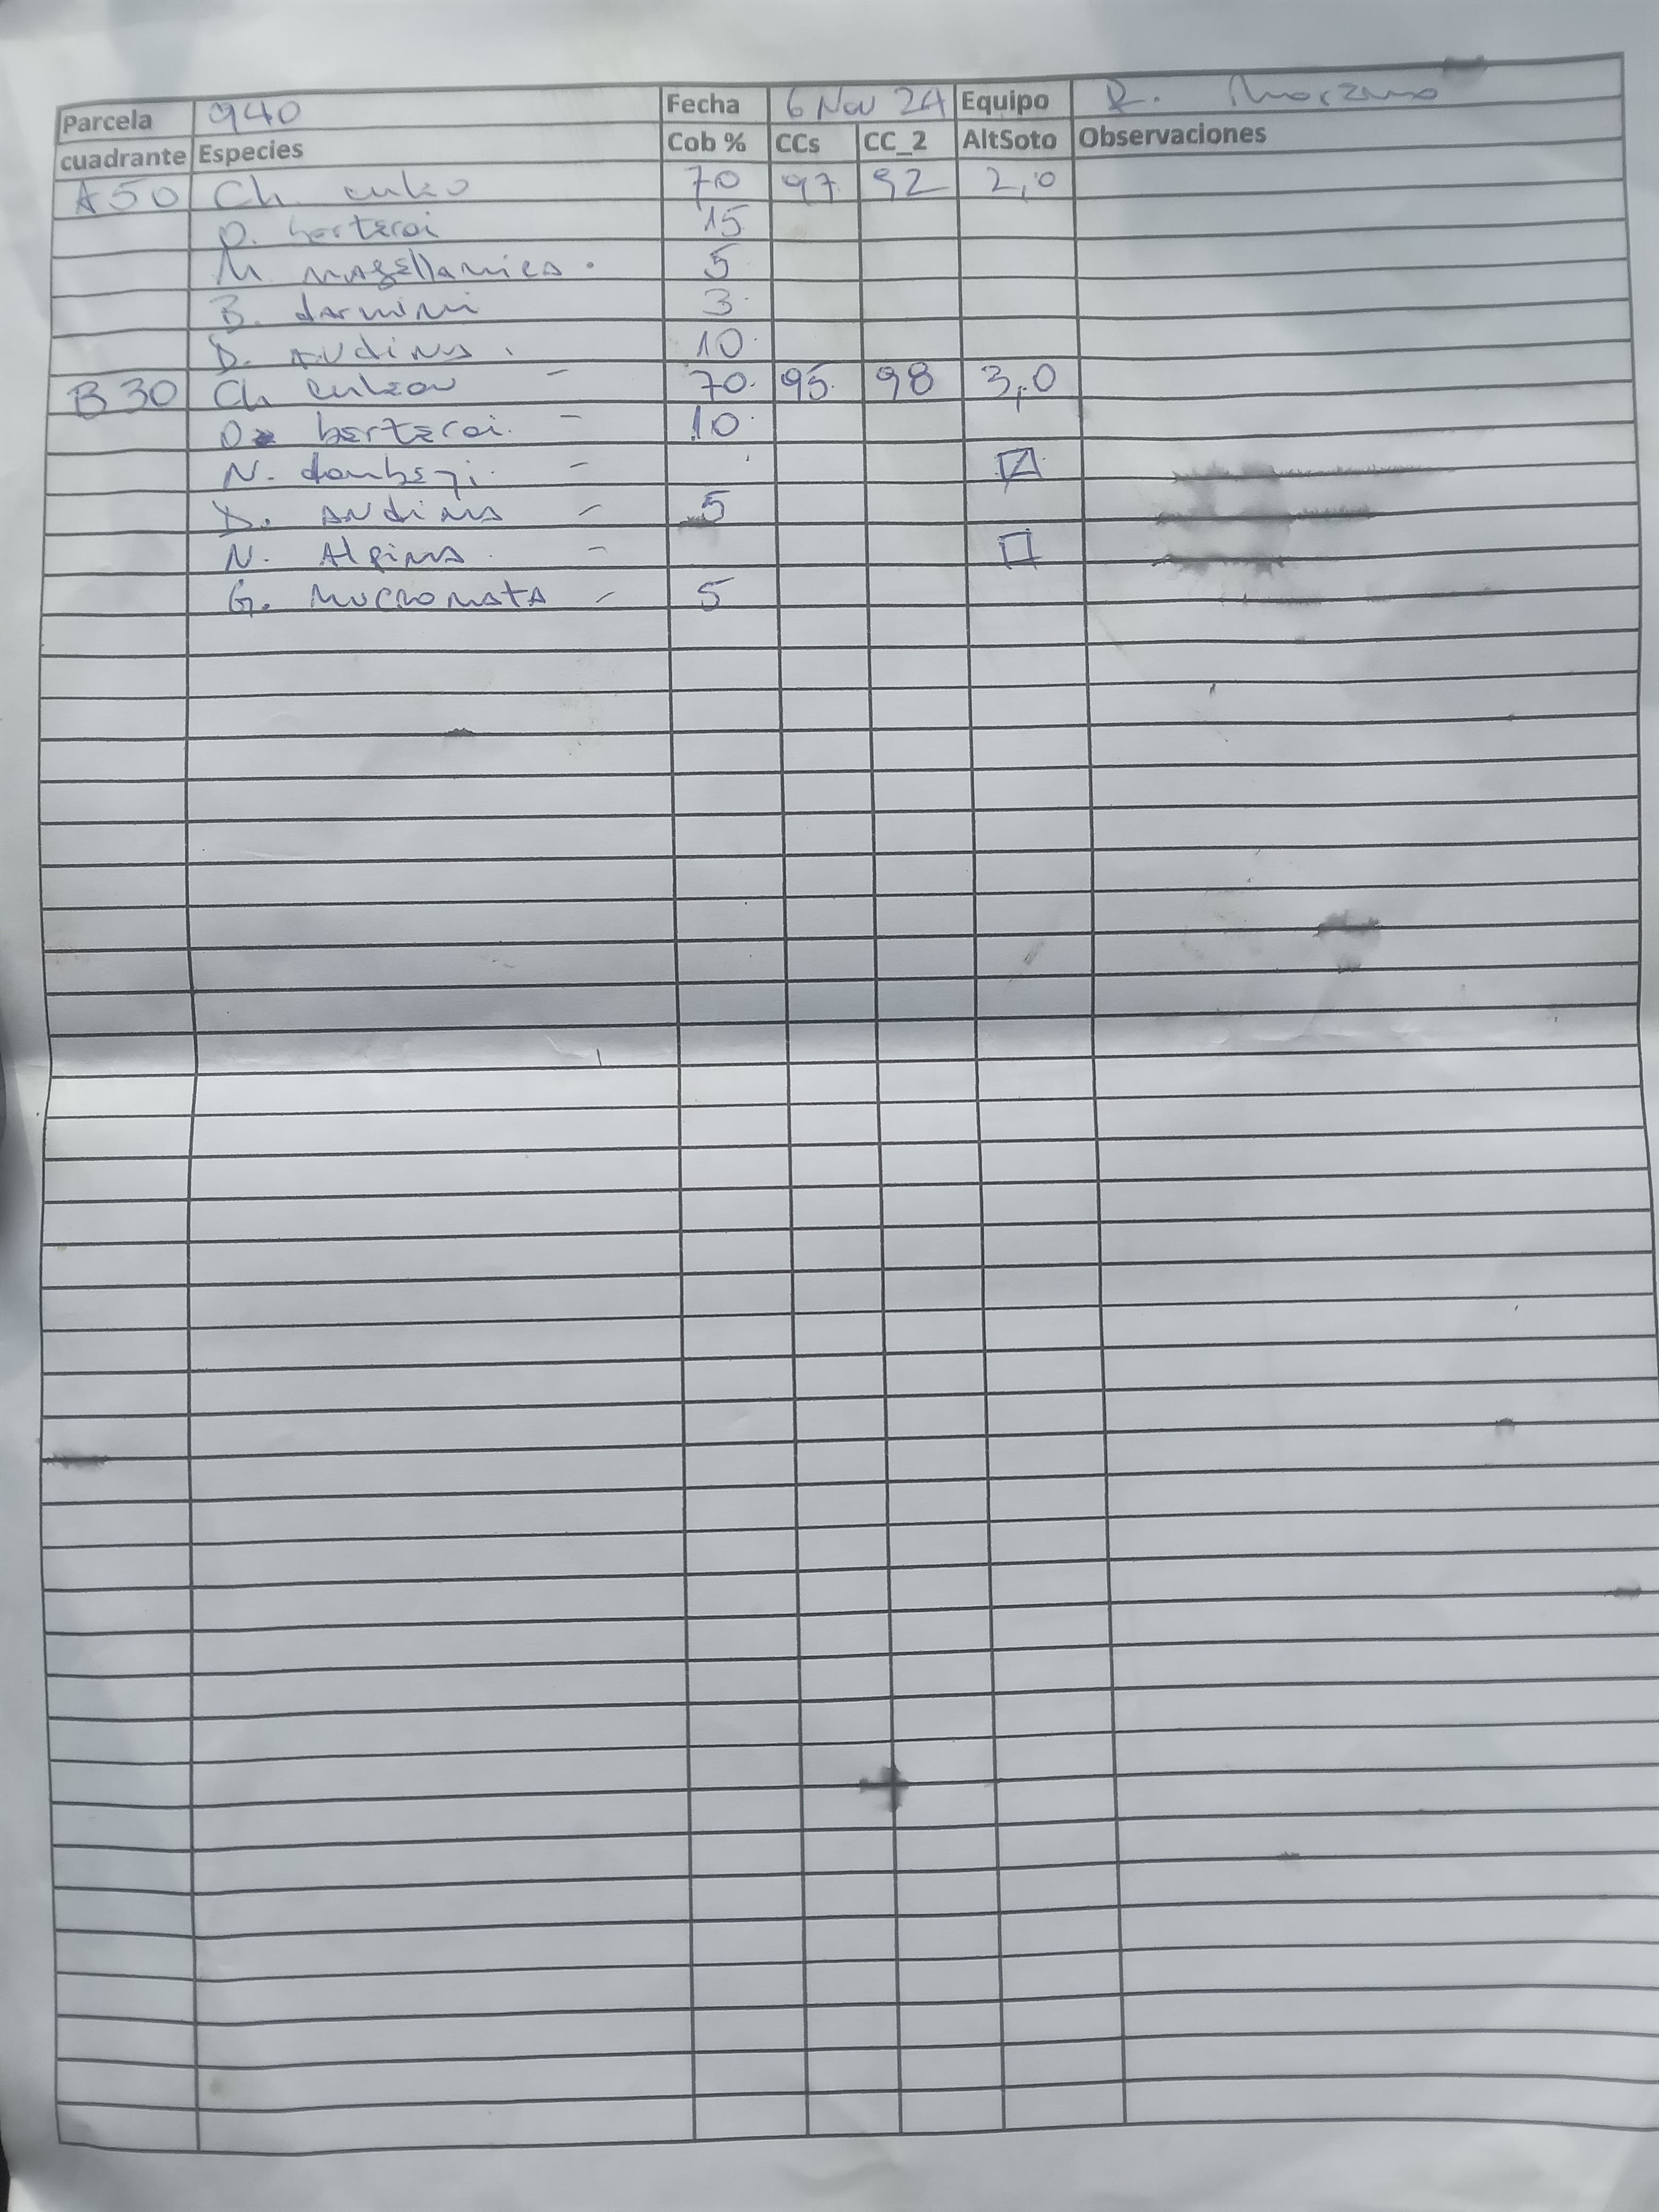 Parcela 940 Fecha 6 Nov 24 Equipo R.
cuadrante Especies Cob % CCs CC_2 AltSoto Observaciones
A50 Ch culeo 70 97 92 2,0
O. berteroi 15
M. magellanica. 5
B. darwini 3
D. Andina. 10
B30 Ch culeou - 70 95 98 3,0
O. berteroi. - 10
N. dombeyi. -
D. Andina - 5
N. Alpina. -
G. Mucronata - 5